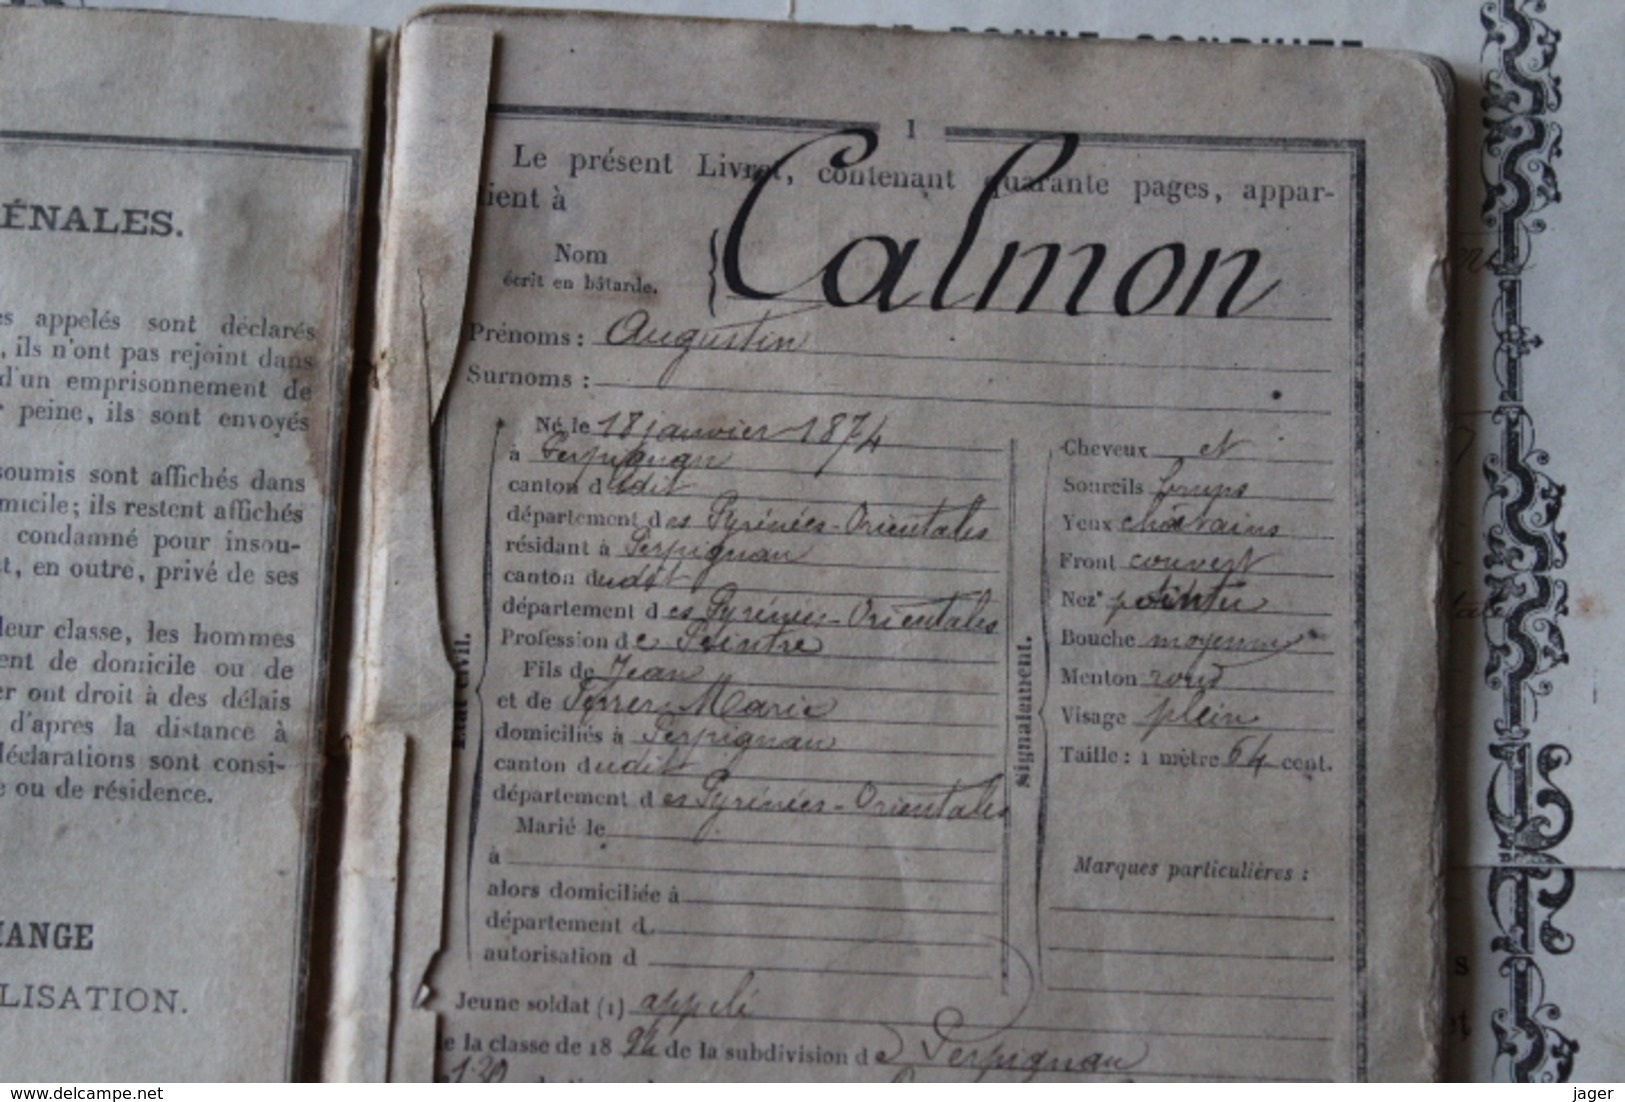 ÉNALES.
es appelés sont déclarés
, ils n'ont pas rejoint dans
d'un emprisonnement de
r peine, ils sont envoyés
soumis sont affichés dans
micile; ils restent affichés
condamné pour insou-
t, en outre, privé de ses
leur classe, les hommes
ent de domicile ou de
er ont droit à des délais
d'apres la distance à
déclarations sont consi-
e ou de résidence.
HANGE
LISATION.
1
Le présent Livret, contenant quarante pages, appar-
tient à
Nom
écrit en bâtarde.
Calmon
Prénoms : Augustin
Surnoms :
État civil.
Né le 18 janvier 1874
à Perpignan
canton dudit
département des Pyrénées-Orientales
résidant à Perpignan
canton dudit
département des Pyrénées-Orientales
Profession de Peintre
Fils de Jean
et de Ferrer Marie
domiciliés à Perpignan
canton dudit
département des Pyrénées-Orientales
Marié le
à
alors domiciliée à
département d
autorisation d
Signalement.
Cheveux et
Sourcils bruns
Yeux châtains
Front couvert
Nez pointu
Bouche moyenne
Menton rond
Visage plein
Taille : 1 mètre 64 cent.
Marques particulières :
Jeune soldat (1) appelé
de la classe de 1894 de la subdivision de Perpignan
130
www.delcampe.net
jager